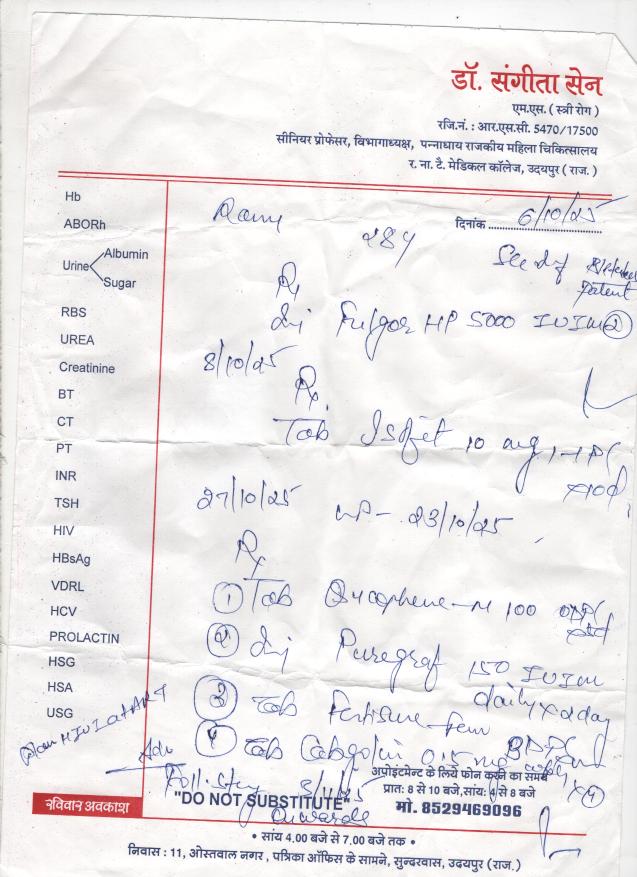 डॉ. संगीता सेन
एम.एस. ( स्त्री रोग )
रजि.नं. : आर.एस.सी. 5470/17500
सीनियर प्रोफेसर, विभागाध्यक्ष, पन्नाधाय राजकीय महिला चिकित्सालय
र. ना. टै. मेडिकल कॉलेज, उदयपुर ( राज. )
Hb
ABORh
Urine Albumin
Sugar
RBS
UREA
Creatinine
BT
CT
PT
INR
TSH
HIV
HBsAg
VDRL
HCV
PROLACTIN
HSG
HSA
USG
दिनांक 6/10/25
284
Rx
Inj HP 5000 IU IM ②
8/10/25
Rx
Tab 10 mg
27/10/25 23/10/25
Rx
① Tab 100
② Inj Puregraf 150 IU IM
daily x 2 day
③ Tab Fertisure-fem
④ Tab Cabgolin 0.5 mg
Adv
3/11/25
onwards
रविवार अवकाश
"DO NOT SUBSTITUTE"
अपोइंटमेन्ट के लिये फोन करने का समय
प्रातः 8 से 10 बजे,सांयः 4 से 8 बजे
मो. 8529469096
• सांय 4.00 बजे से 7.00 बजे तक •
निवास : 11, ओस्तवाल नगर , पत्रिका ऑफिस के सामने, सुन्दरवास, उदयपुर (राज.)